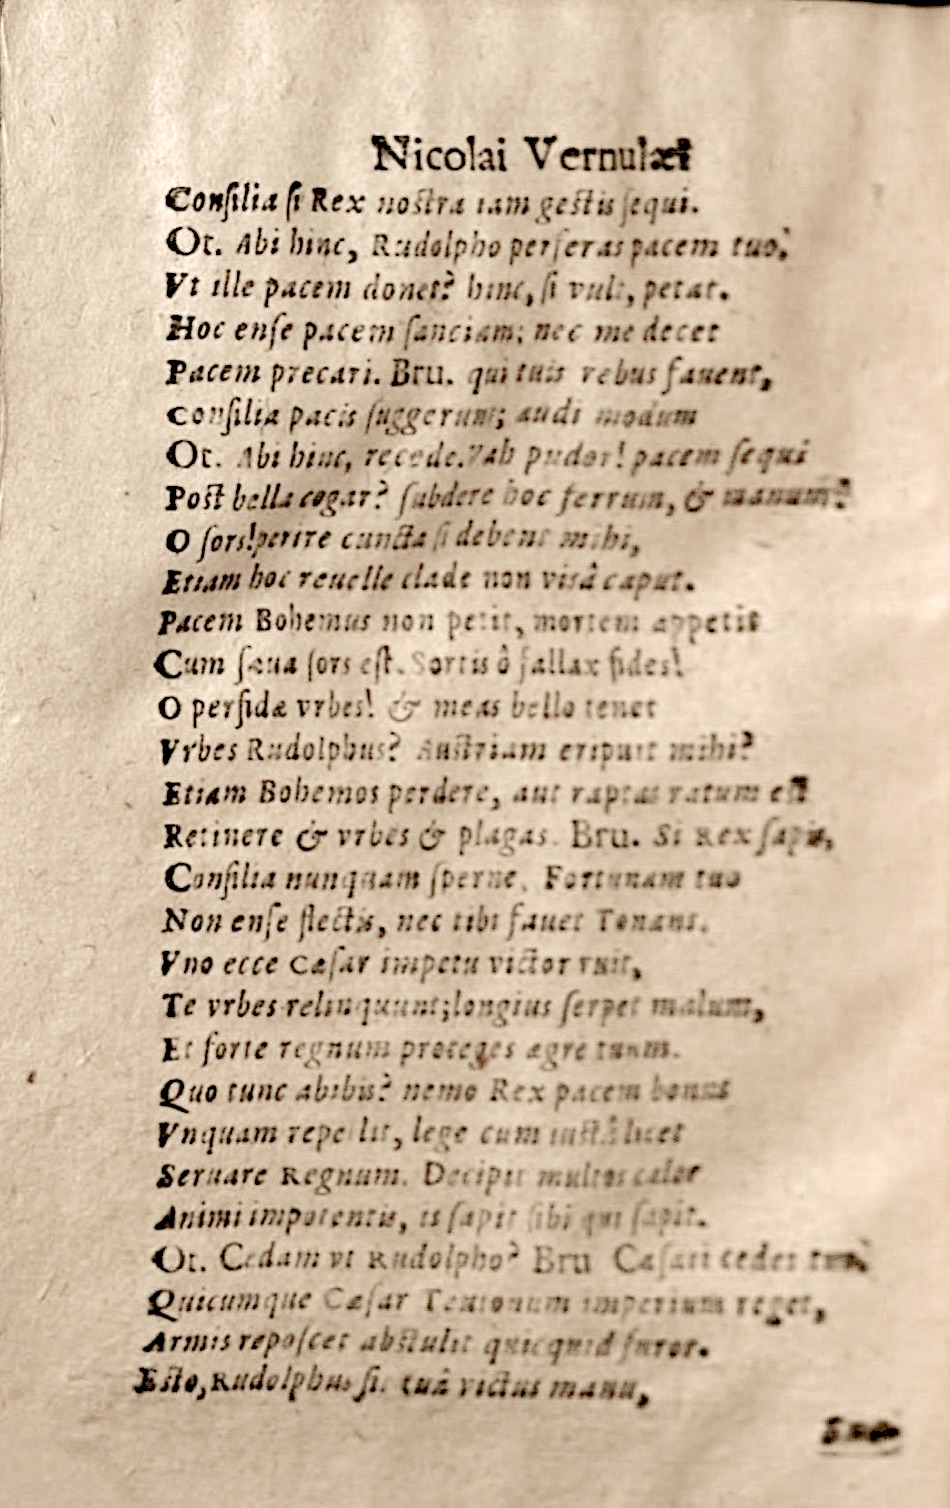 Nicolai Vernulæi
Consilia si Rex nostra iam gestis sequi.
Ot. Abi hinc, Rudolpho perferas pacem tuo.
Vt ille pacem donet? hinc, si vult, petat.
Hoc ense pacem sanciam; nec me decet
Pacem precari. Bru. qui tuis rebus fauent,
Consilia pacis suggerunt; audi modum
Ot. Abi hinc, recede. Vah pudor! pacem sequi
Post bella cogar? subdere hoc ferrum, & manum?
O sors! perire cuncta si debent mihi,
Etiam hoc reuelle clade non visâ caput.
Pacem Bohemus non petit, mortem appetit
Cum sæua sors est. Sortis ô fallax fides!
O perfidæ vrbes! & meas bello tenet
Vrbes Rudolphus? Austriam eripuit mihi?
Etiam Bohemos perdere, aut raptas ratum est
Retinere & vrbes & plagas. Bru. Si Rex sapis,
Consilia nunquam sperne. Fortunam tuo
Non ense flectis, nec tibi fauet Tonans.
Vno ecce Cæsar impetu victor ruit,
Te vrbes relinquunt; longius serpet malum,
Et forte regnum proteges ægre tuum.
Quo tunc abibis? nemo Rex pacem bonus
Vnquam repellit, lege cum iustâ licet
Seruare Regnum. Decipit multos calor
Animi impotentis, is sapit sibi qui sapit.
Ot. Cedam vt Rudolpho? Bru Cæsari cedes
Quicumque Cæsar Teutonum imperium reget,
Armis reposcet abstulit quicquid furor.
Esto, Rudolphus si. tuâ victus manu,